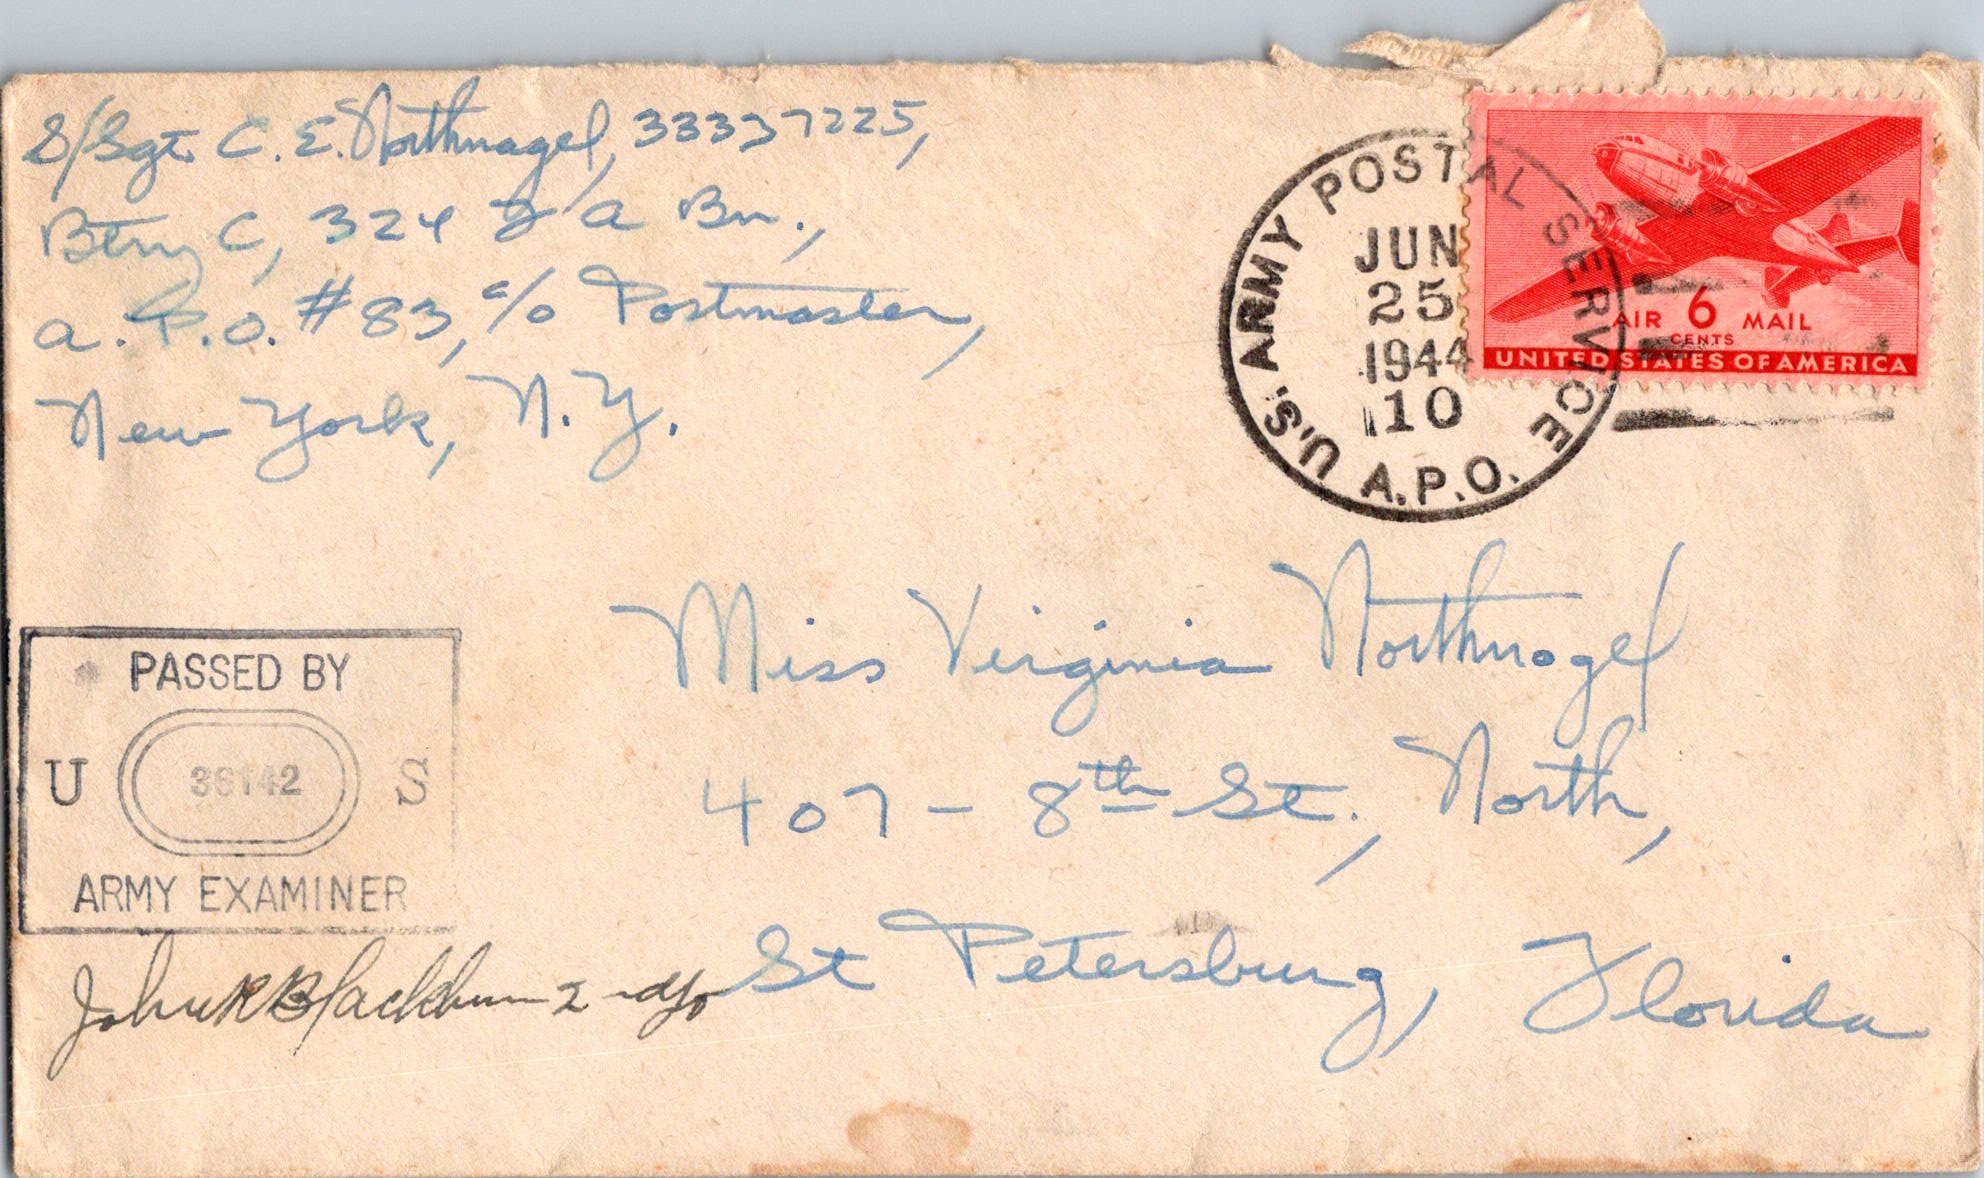 S/Sgt. C. E. Northnagel, 33337225,
Btry C, 324 F A Bn.,
A. P.O. #83, c/o Postmaster,
New York, N. Y.
U.S. ARMY POSTAL SERVICE
JUN
25
1944
10
A.P.O.
AIR 6 MAIL
CENTS
UNITED STATES OF AMERICA
Miss Virginia Northnagel
407 - 8th St., North,
St Petersburg, Florida
PASSED BY
U 36142 S
ARMY EXAMINER
John R Blackburn 2